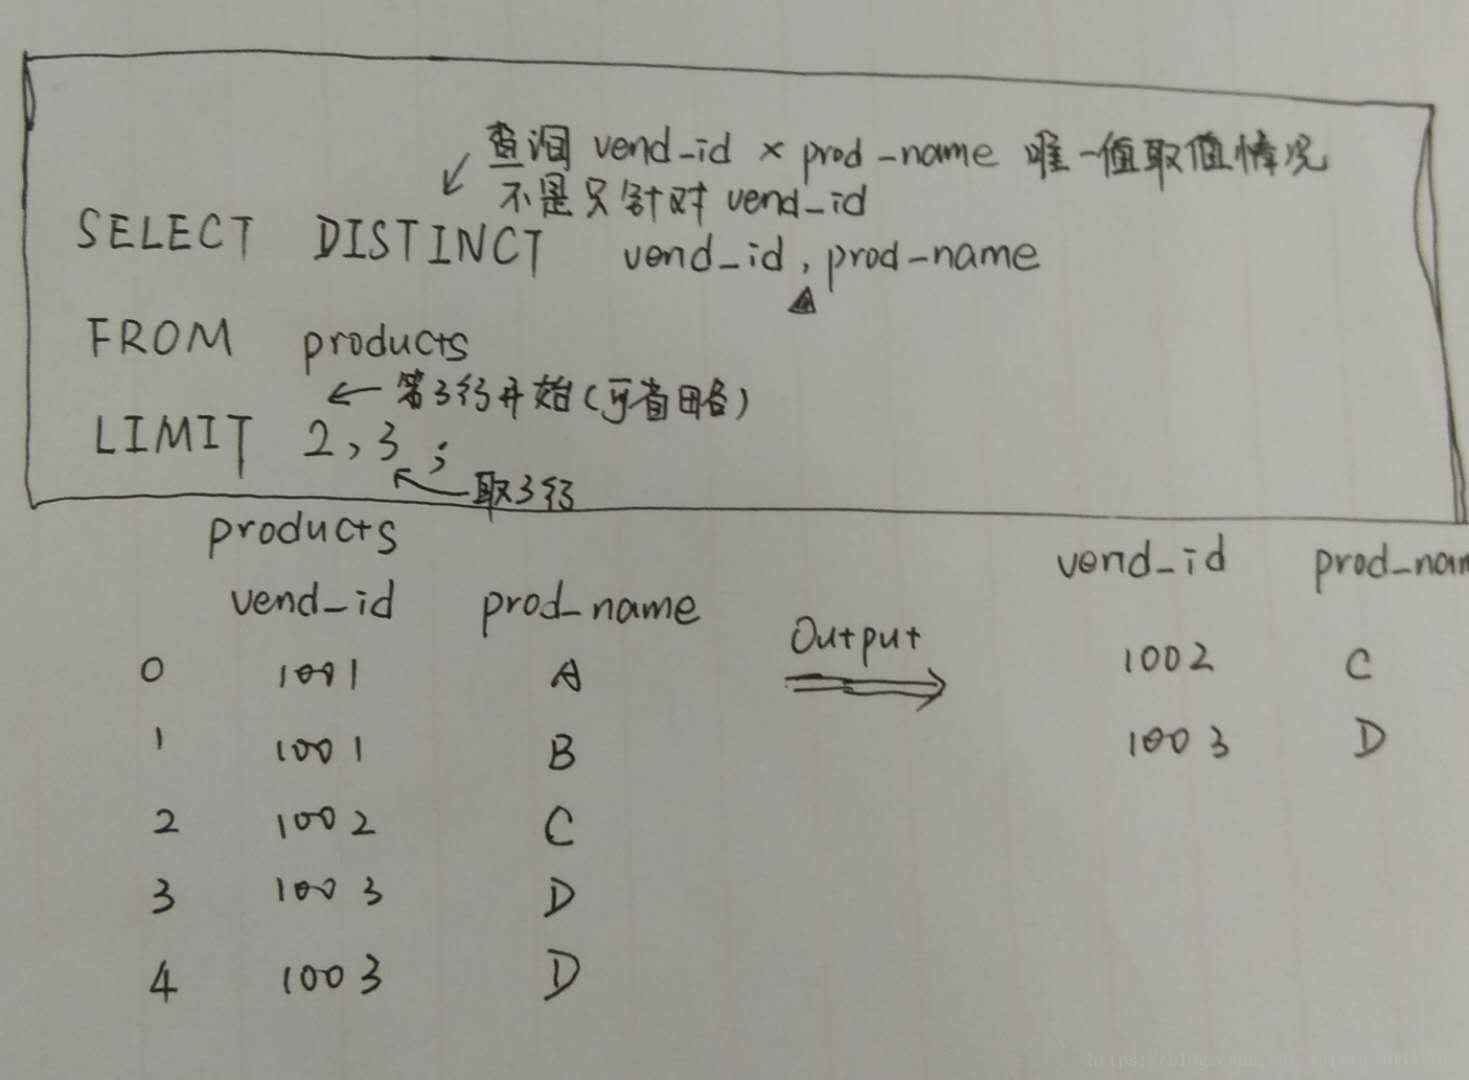 查询 vend_id × prod_name 唯一值取值情况
不是只针对 vend_id
SELECT DISTINCT vend_id, prod_name
FROM products
← 第3行开始(可省略)
LIMIT 2,3;
取3行
products
vend_id prod_name
0 1001 A
1 1001 B
2 1002 C
3 1003 D
4 1003 D
Output
vend_id prod_nam
1002 C
1003 D